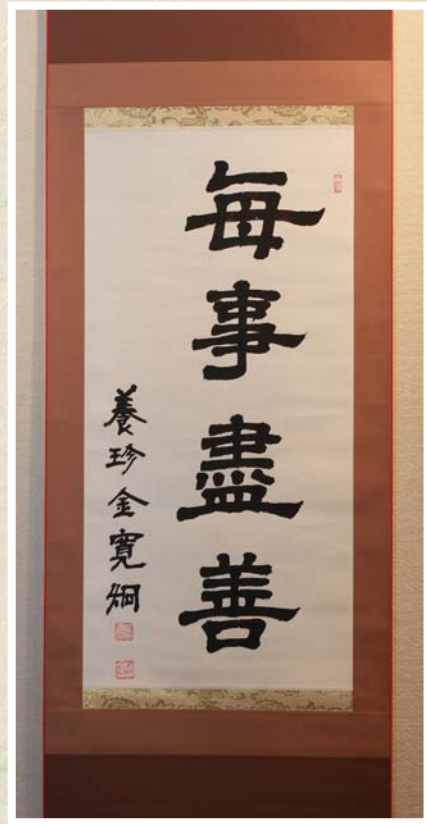 每事盡善
養珍 金寬炯